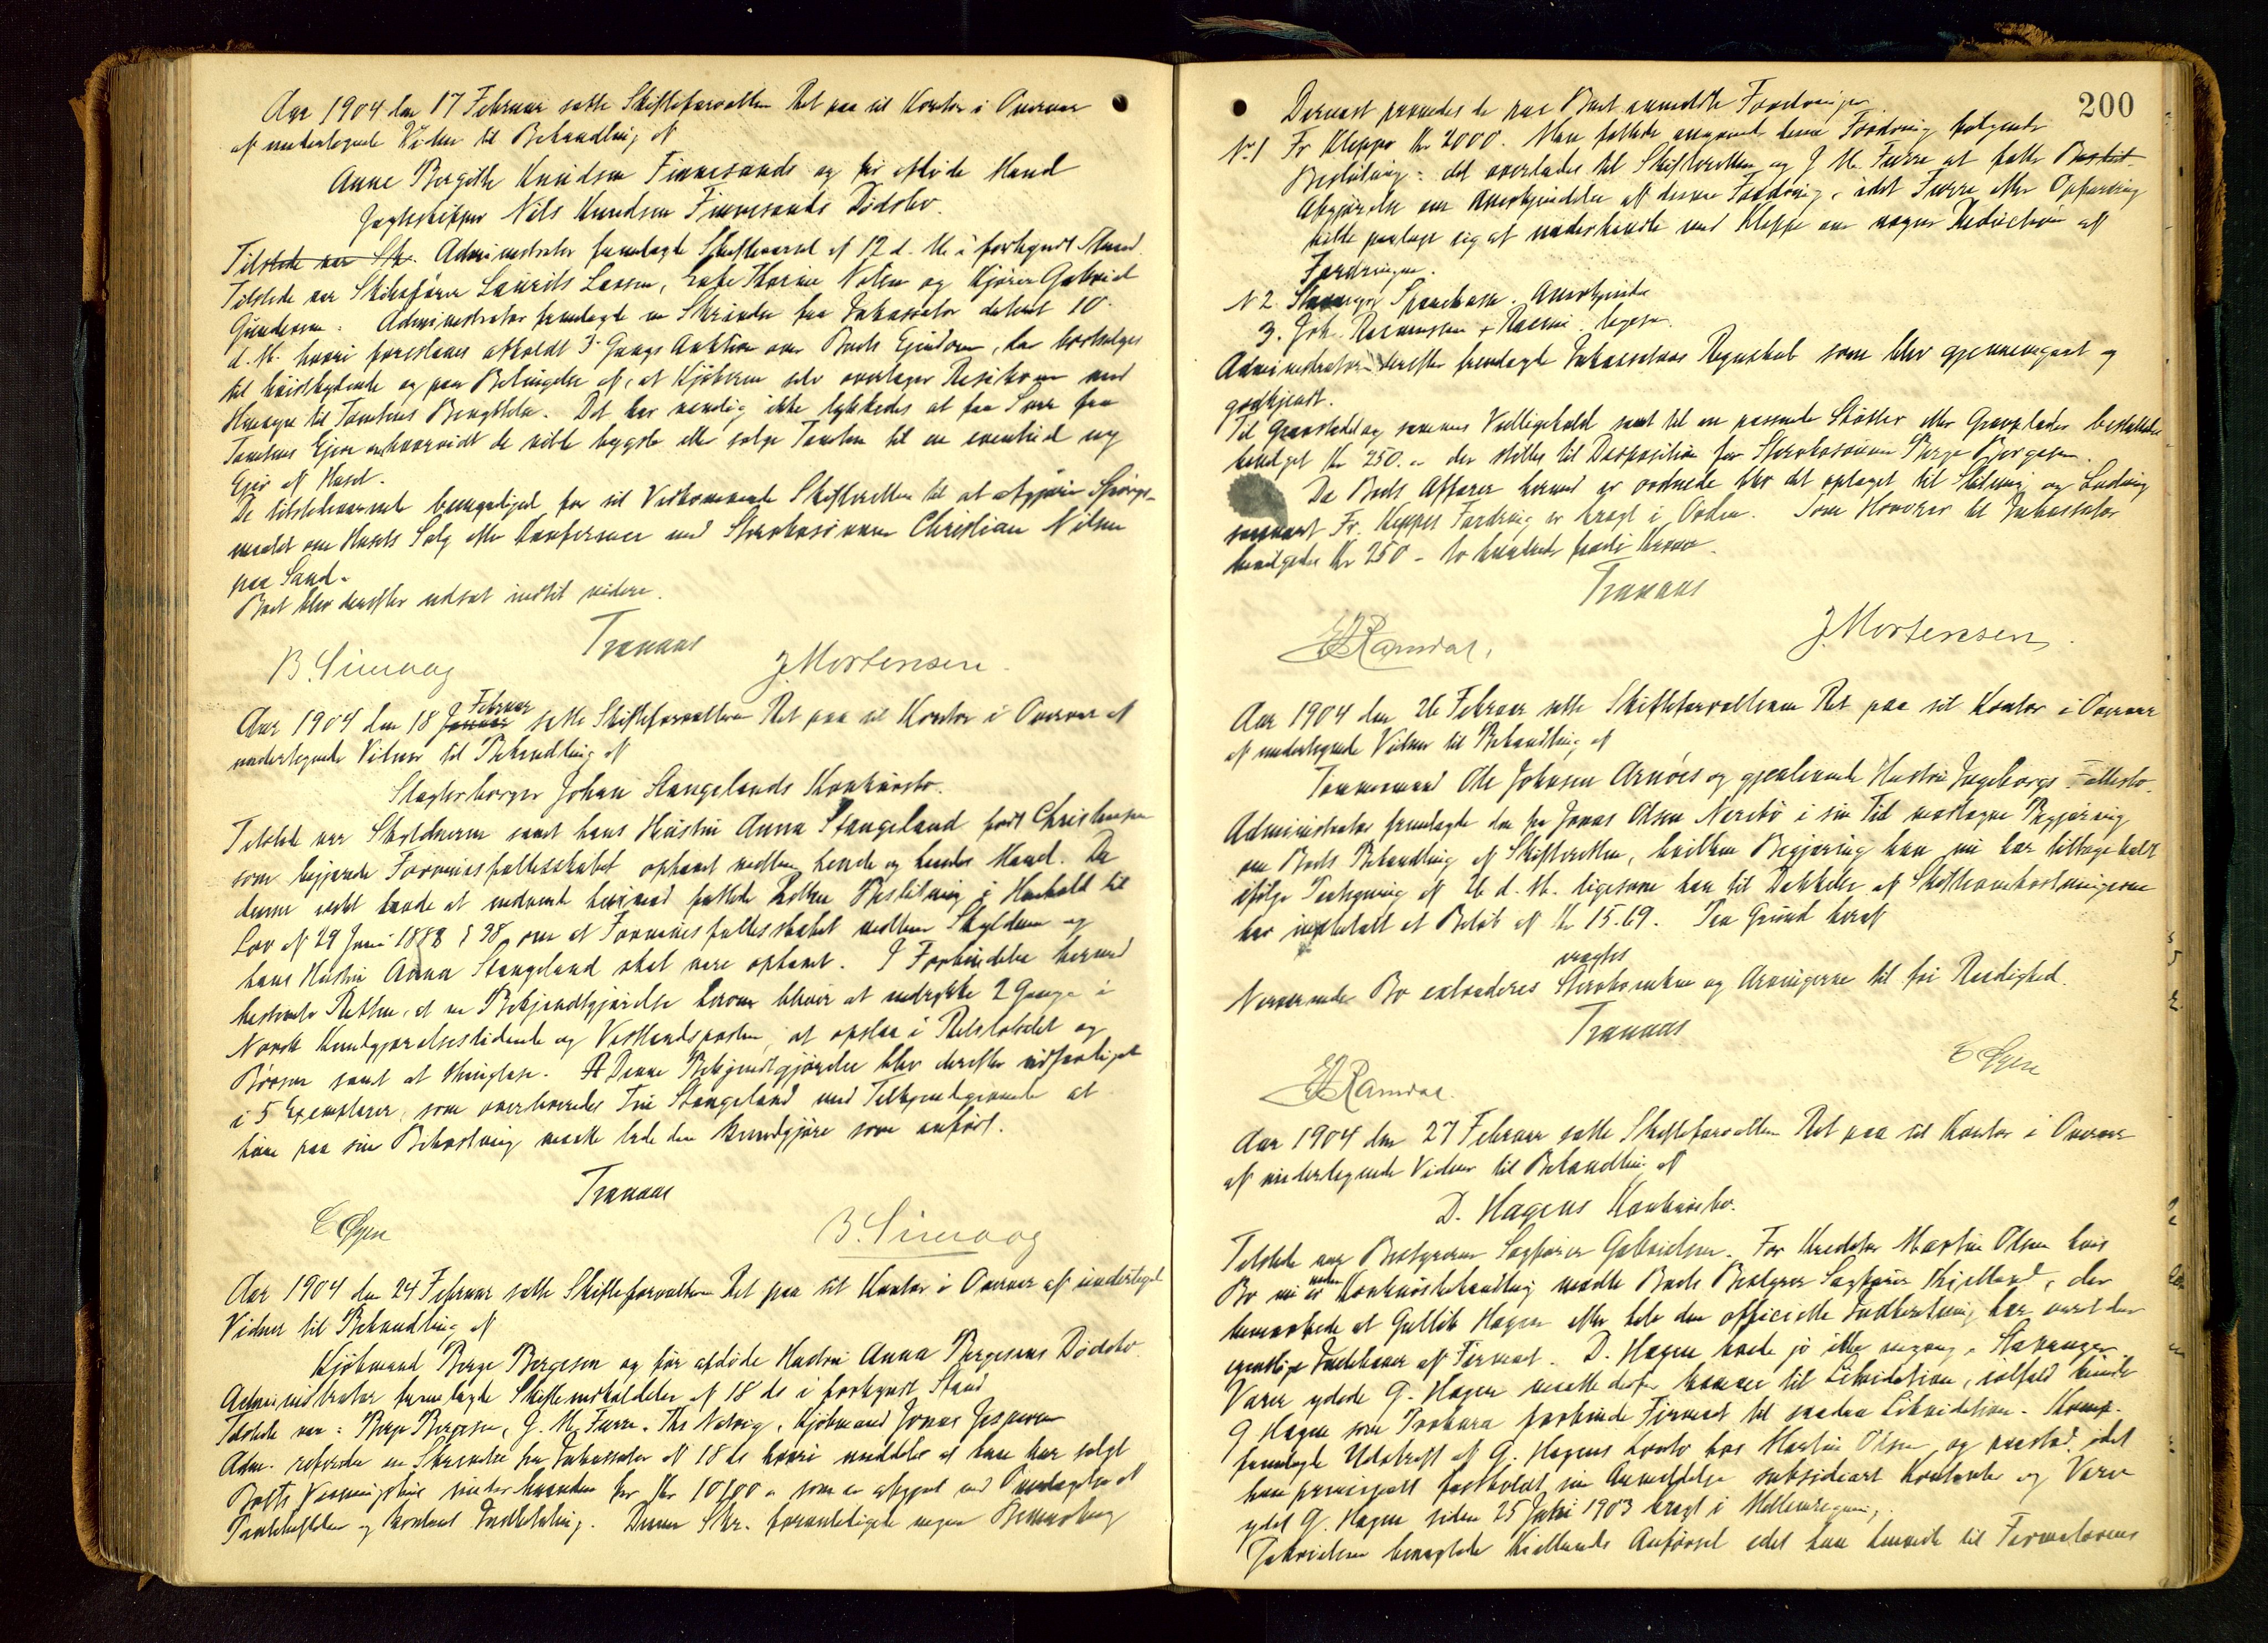 Aar 1904 den 17 Februar satte Skifteforvalteren Ret paa sit Kontor i Overvær
af undertegnede Vidner til Behandling af
Anne Bergitte Knudsen Finnesands og før afdøde Mand
Jagtskipper Nils Knudsen Finnesands Dødsbo.
Tilstede var Skr. Administrator fremlagde Skiftevarsel af 12 d. M. i forkyndt Stand.
Tilstede var Skibsfører Laurits Larsen, Enke Thorine Nilsen og Kjører Gabriel
Gundersen. Administrator fremlagde en Skrivelse fra Inkassator dateret 10
d. M. hvori foreslaaes afholdt 3 Gangs Auktion over Boets Eiendom, der bortsælges
til høistbydende og paa Betingelse af, at Kjøberen selv overtager Risikoen med
Hensyn til Tomtens Benyttelse. Det har nemlig ikke lykkedes at faa Svar fra
Tomtens Eiere om hvorvidt de vilde bygsle eller sælge Tomten til en eventuel ny
Eier af Huset.
De tilstedeværende bemyndiget for sit Vedkommende Skifteretten til at afgjøre Spørgs-
maalet om Husets Salg efter Konference med Stervbosønnen Christian Nilsen
paa Sand.
Boet blev derefter udsat indtil videre.
Tranaas
B. Simaag J. Mortensen.
Februar
Aar 1904 den 18 Januar satte Skifteforvalteren Ret paa sit Kontor i Overvær af
undertegnede Vidner til Behandling af
Slagterborger Johan Stangelands Konkursbo.
Tilstede var Skyldneren samt hans Hustru Anna Stangeland født Christensen
som begjærede Formuesfællesskabet ophævet mellem hende og hendes Mand. Da
denne intet havde at indvende herimod fattede Retten Beslutning i Henhold til
Lov af 29 Juni 1888 § 38 om at Formuesfællesskabet mellem Skyldneren og
hans Hustru Anna Stangeland skal være ophævet. I Forbindelse hermed
bestemte Retten, at en Bekjendtgjørelse herom bliver at indrykke 2 Gange i
Norsk Kundgjørelsestidende og Vestlandsposten, at opslaa i Retslokalet og
Børsen samt at thinglæse. Denne Bekjendtgjørelse blev derefter udfærdiget
i 5 Exemplarer, som overleveredes Fru Stangeland med Tilkjendegivende at
hun paa sin Bekostning maatte lade den kundgjøre som anført.
Tranaas
B. Simaag
Aar 1904 den 24 Februar satte Skifteforvalteren Ret paa sit Kontor i Overvær af undertegnede
Vidner til Behandling af
Kjøbmand Berge Bergesen og før afdøde Hustru Anna Bergesens Dødsbo.
Administrator fremlagde Skifteindkaldelse af 18 ds i forkyndt Stand
Tilstede var: Berge Bergesen, J. M. Furre, Ths Natvig, Kjøbmand Jonas Jespersen
Adm. refererede en Skrivelse fra Inkassator af 18 ds hvori meddeles at han har solgt
Boets Vaaningshus underhaanden for Kr 10100 som er afgjort ved Overtagelse af
Pantehæftelser og kontant Indbetaling. Denne Skr. foranledigede ingen Bemærkning
200
Dernæst prøvedes de paa Boet anmeldte Fordringer.
No. 1 Fr Kleppe Kr 2000. Man fattede angaaende denne Fordring følgende
Beslutning: det overlades til Skifteretten og J. M. Furre at fatte Beslut-
Afgjørelse om Anerkjendelse af denne Fordring, idet Furre efter Opfordring
vilde paatage sig at underhandle med Kleppe om nogen Reduction af
Fordringen.
N 2. Stavanger Sparekasse. Anerkjendes
3. Joh. Rasmussen & Racine. ligesaa.
Administrator derefter fremlagde Inkassators Regnskab som blev gjennemgaaet og
godkjendt.
Til Gravstedet og sammes Vedligehold samt til en passende Støtter eller Gravplader
bevilget Kr 250.– der stilles til Disposition for Stervbosønnen Berge Bergesen.
Da Boets Affærer hermed er ordnede blev det optaget til Slutning og Lodning
saasnart Fr. Kleppes Fordring er bragt i Orden. Som Honorar til Inkassator
bevilgedes Kr 250 – to hundrede femti Kroner.
Tranaas
Ramdal. J. Mortensen.
Aar 1904 den 26 Februar satte Skifteforvalteren Ret paa sit Kontor i Overvær
af undertegnede Vidner til Behandling af
Tømmermand Ole Johnsen Arnøes og gjenlevende Hustru Ingeborgs Fællesbo.
Administrator fremlagde den fra Jonas Olsen Nerebø i sin Tid modtagne Begjæring
om Boets Behandling af Skifteretten, hvilken Begjæring han nu har tilbagekaldt
ifølge Paategning af d. M. ligesom han til Dækkelse af Skifteomkostningerne
har indbetalt et Beløb af Kr 15.69. Paa Grund heraf
eragtes
Nærværende Bo extraderes Stervboenken og Arvingerne til fri Raadighed.
Tranaas
Ramdal.
Aar 1904 den 27 Februar satte Skifteforvalteren Ret paa sit Kontor i Overvær
af undertegnede Vidner til Behandling af
D. Hagens Konkursbo.
Tilstede var Bestyreren Sagfører Gabrielsen. For Kreditor Martin Olsen hvis
under
Bo nu er Konkursbehandling mødte Boets Bestyrer Sagfører Kielland, der
bemærkede at Gullik Hagen efter hele den officielle Indberetning har været den
egentlige Indehaver af Firmaet. D. Hagen boede jo ikke engang i Stavanger.
Varer ydede G. Hagen maatte derfor komme til Likvidation, ialfald kunde
G Hagen som Prokura forbinde Firmaet til saadan Likvidation. Komp.
fremlagde Udskrift af G. Hagens Konto hos Martin Olsen og paastod, idet
han principalt fastholdt sin Anmeldelse subsidiært Kontanter og Varer
ydet G. Hagen siden 25 Juli 1903 bragt i Mellemregning.
Gabrielsen benægtede Kiellands Anførsel idet han henviste til Firmalovens